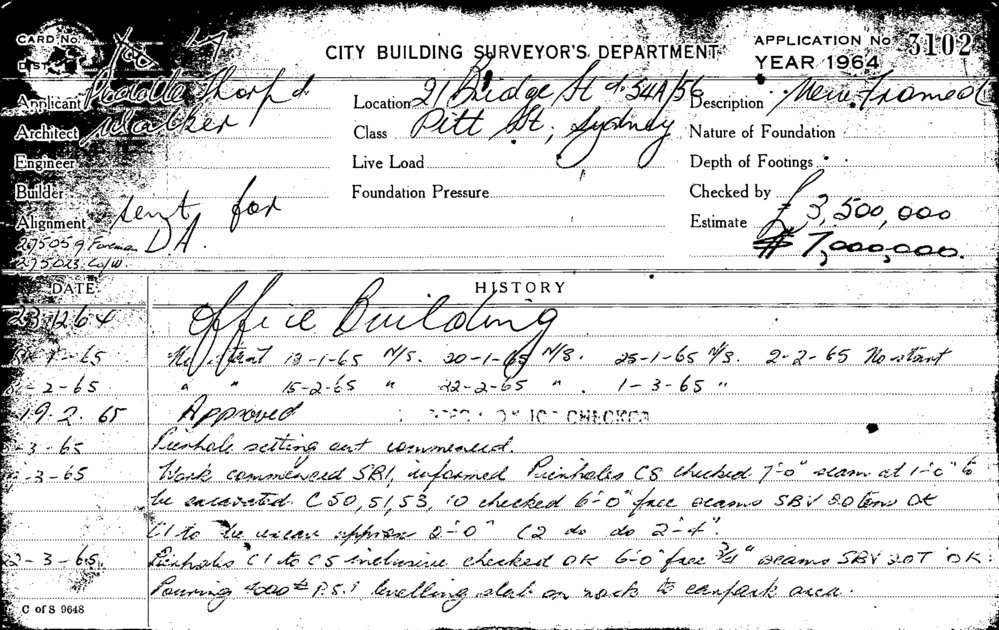 CARD No.
CITY BUILDING SURVEYOR'S DEPARTMENT
APPLICATION No 3102
YEAR 1964
DIST
Applicant Thorp &
Architect Walker
Engineer
Builder
Alignment sent for
D.A.
275059 Foreman
275023 Co/W.
Location 21 Bridge St & 54A/56
Class Pitt St, Sydney
Live Load
Foundation Pressure
Description New Framed
Nature of Foundation
Depth of Footings
Checked by
Estimate £ 3,500,000
$ 7,000,000.
DATE HISTORY
23.12.64 Office Building
-65 No start 13-1-65 N/S. 20-1-65 N/S. 25-1-65 N/S. 2-2-65 No start
-2-65 " " 15-2-65 " 22-2-65 " . 1-3-65 "
19.2.65 Approved CHECKED
-3-65 Pierhole setting out commenced.
-3-65 Work commenced SRI, informed Pierholes C8 checked 7'-0" seam at 1'-0" to
be excavated. C50, 51, 53, 10 checked 6'-0" face seams SBV 20 tons OK
C1 to be excav approx 2'-0" C2 do do 2'-4".
2-3-65 Pierholes C1 to C5 inclusive checked OK 6'-0" face 3/4" seams SBV 20T OK.
Pouring 4000# P.S.I levelling slab on rock to carpark area.
C of S 9648